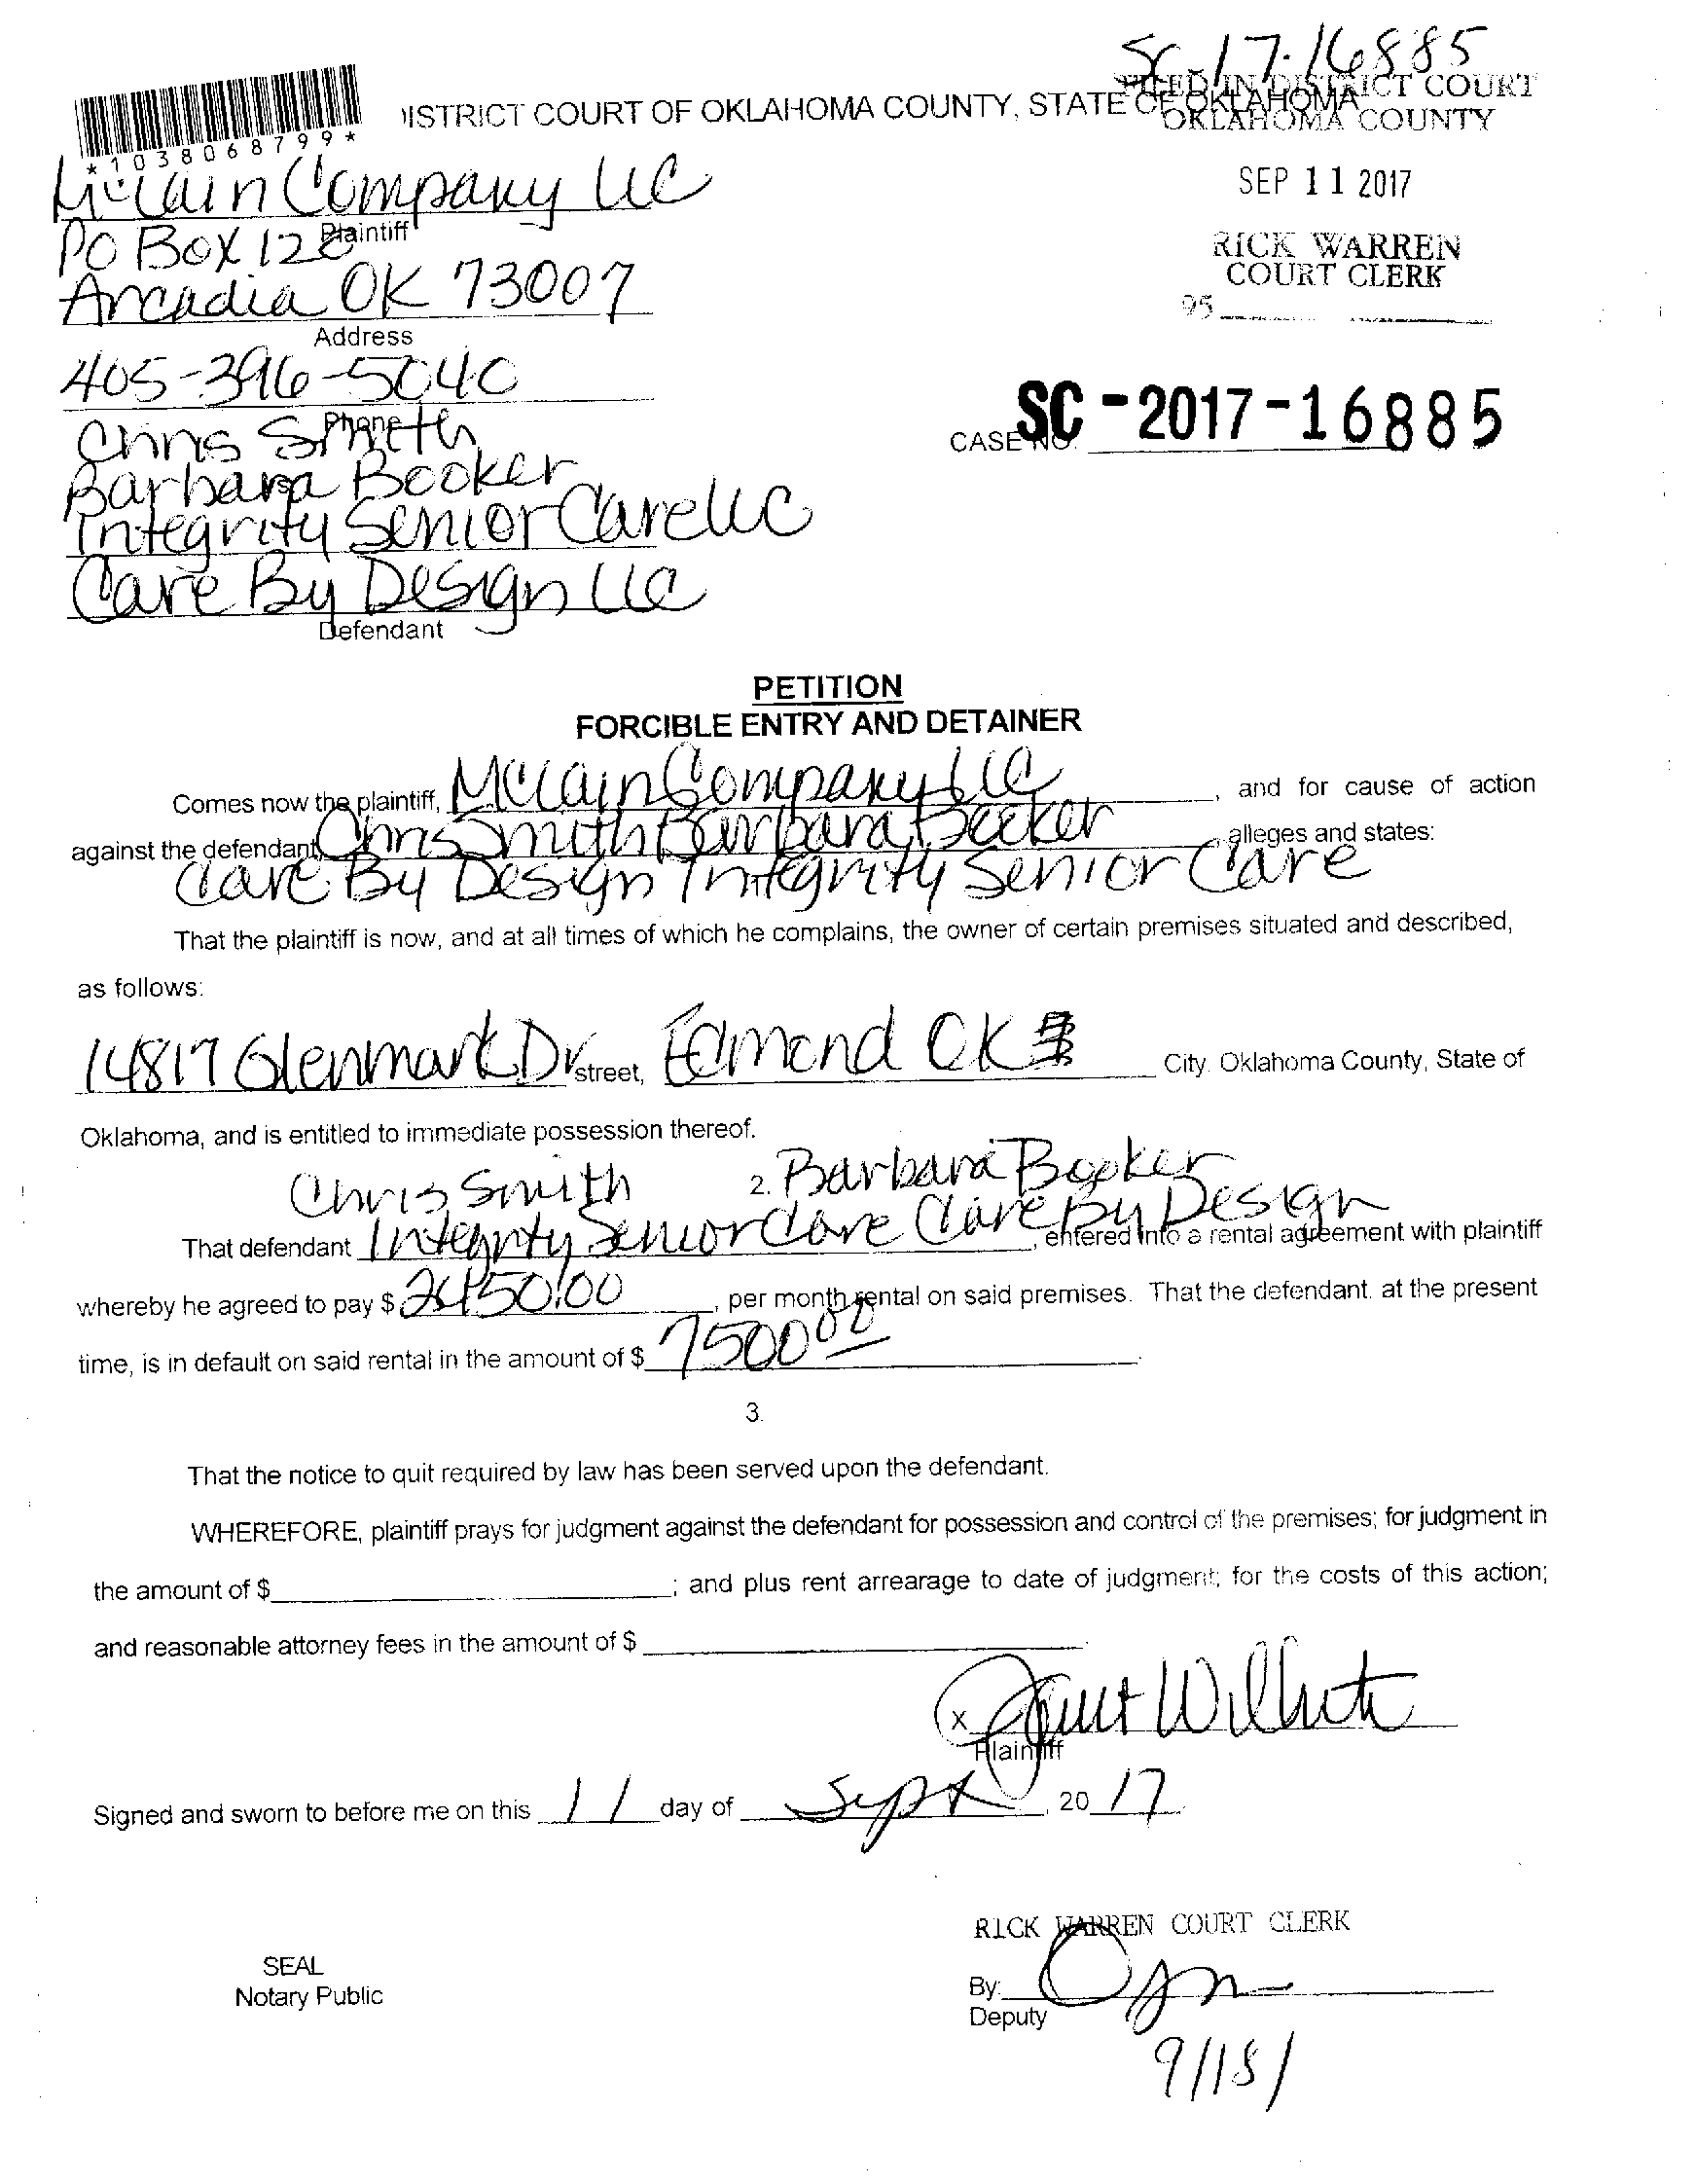 SC-17-16885
FILED IN DISTRICT COURT
OKLAHOMA COUNTY
ISTRICT COURT OF OKLAHOMA COUNTY, STATE OF OKLAHOMA
*1038068799*
SEP 11 2017
RICK WARREN
COURT CLERK
95
McClain Company LLC
Plaintiff
PO Box 128
Arcadia OK 73007
Address
405-396-5040
Phone
CASE NO. SC-2017-16885
Chris Smith
Barbara Booker
Integrity Senior Care LLC
Care By Design LLC
Defendant
PETITION
FORCIBLE ENTRY AND DETAINER
Comes now the plaintiff, McClain Company LLC, and for cause of action
against the defendant, Chris Smith Barbara Booker alleges and states:
Care By Design Integrity Senior Care
That the plaintiff is now, and at all times of which he complains, the owner of certain premises situated and described,
as follows:
14817 Glenmark Dr street, Edmond OK City, Oklahoma County, State of
Oklahoma, and is entitled to immediate possession thereof.
2.
Chris Smith Barbara Booker
That defendant Integrity Senior Care Care By Design, entered into a rental agreement with plaintiff
whereby he agreed to pay $ per month rental on said premises. That the defendant, at the present
time, is in default on said rental in the amount of $ 7500 00.
3.
That the notice to quit required by law has been served upon the defendant.
WHEREFORE, plaintiff prays for judgment against the defendant for possession and control of the premises; for judgment in
the amount of $ ; and plus rent arrearage to date of judgment; for the costs of this action;
and reasonable attorney fees in the amount of $
x Janet Wilhite
Plaintiff
Signed and sworn to before me on this 11 day of Sept, 20 17.
RICK WARREN COURT CLERK
SEAL
Notary Public
By:
Deputy
9/18/